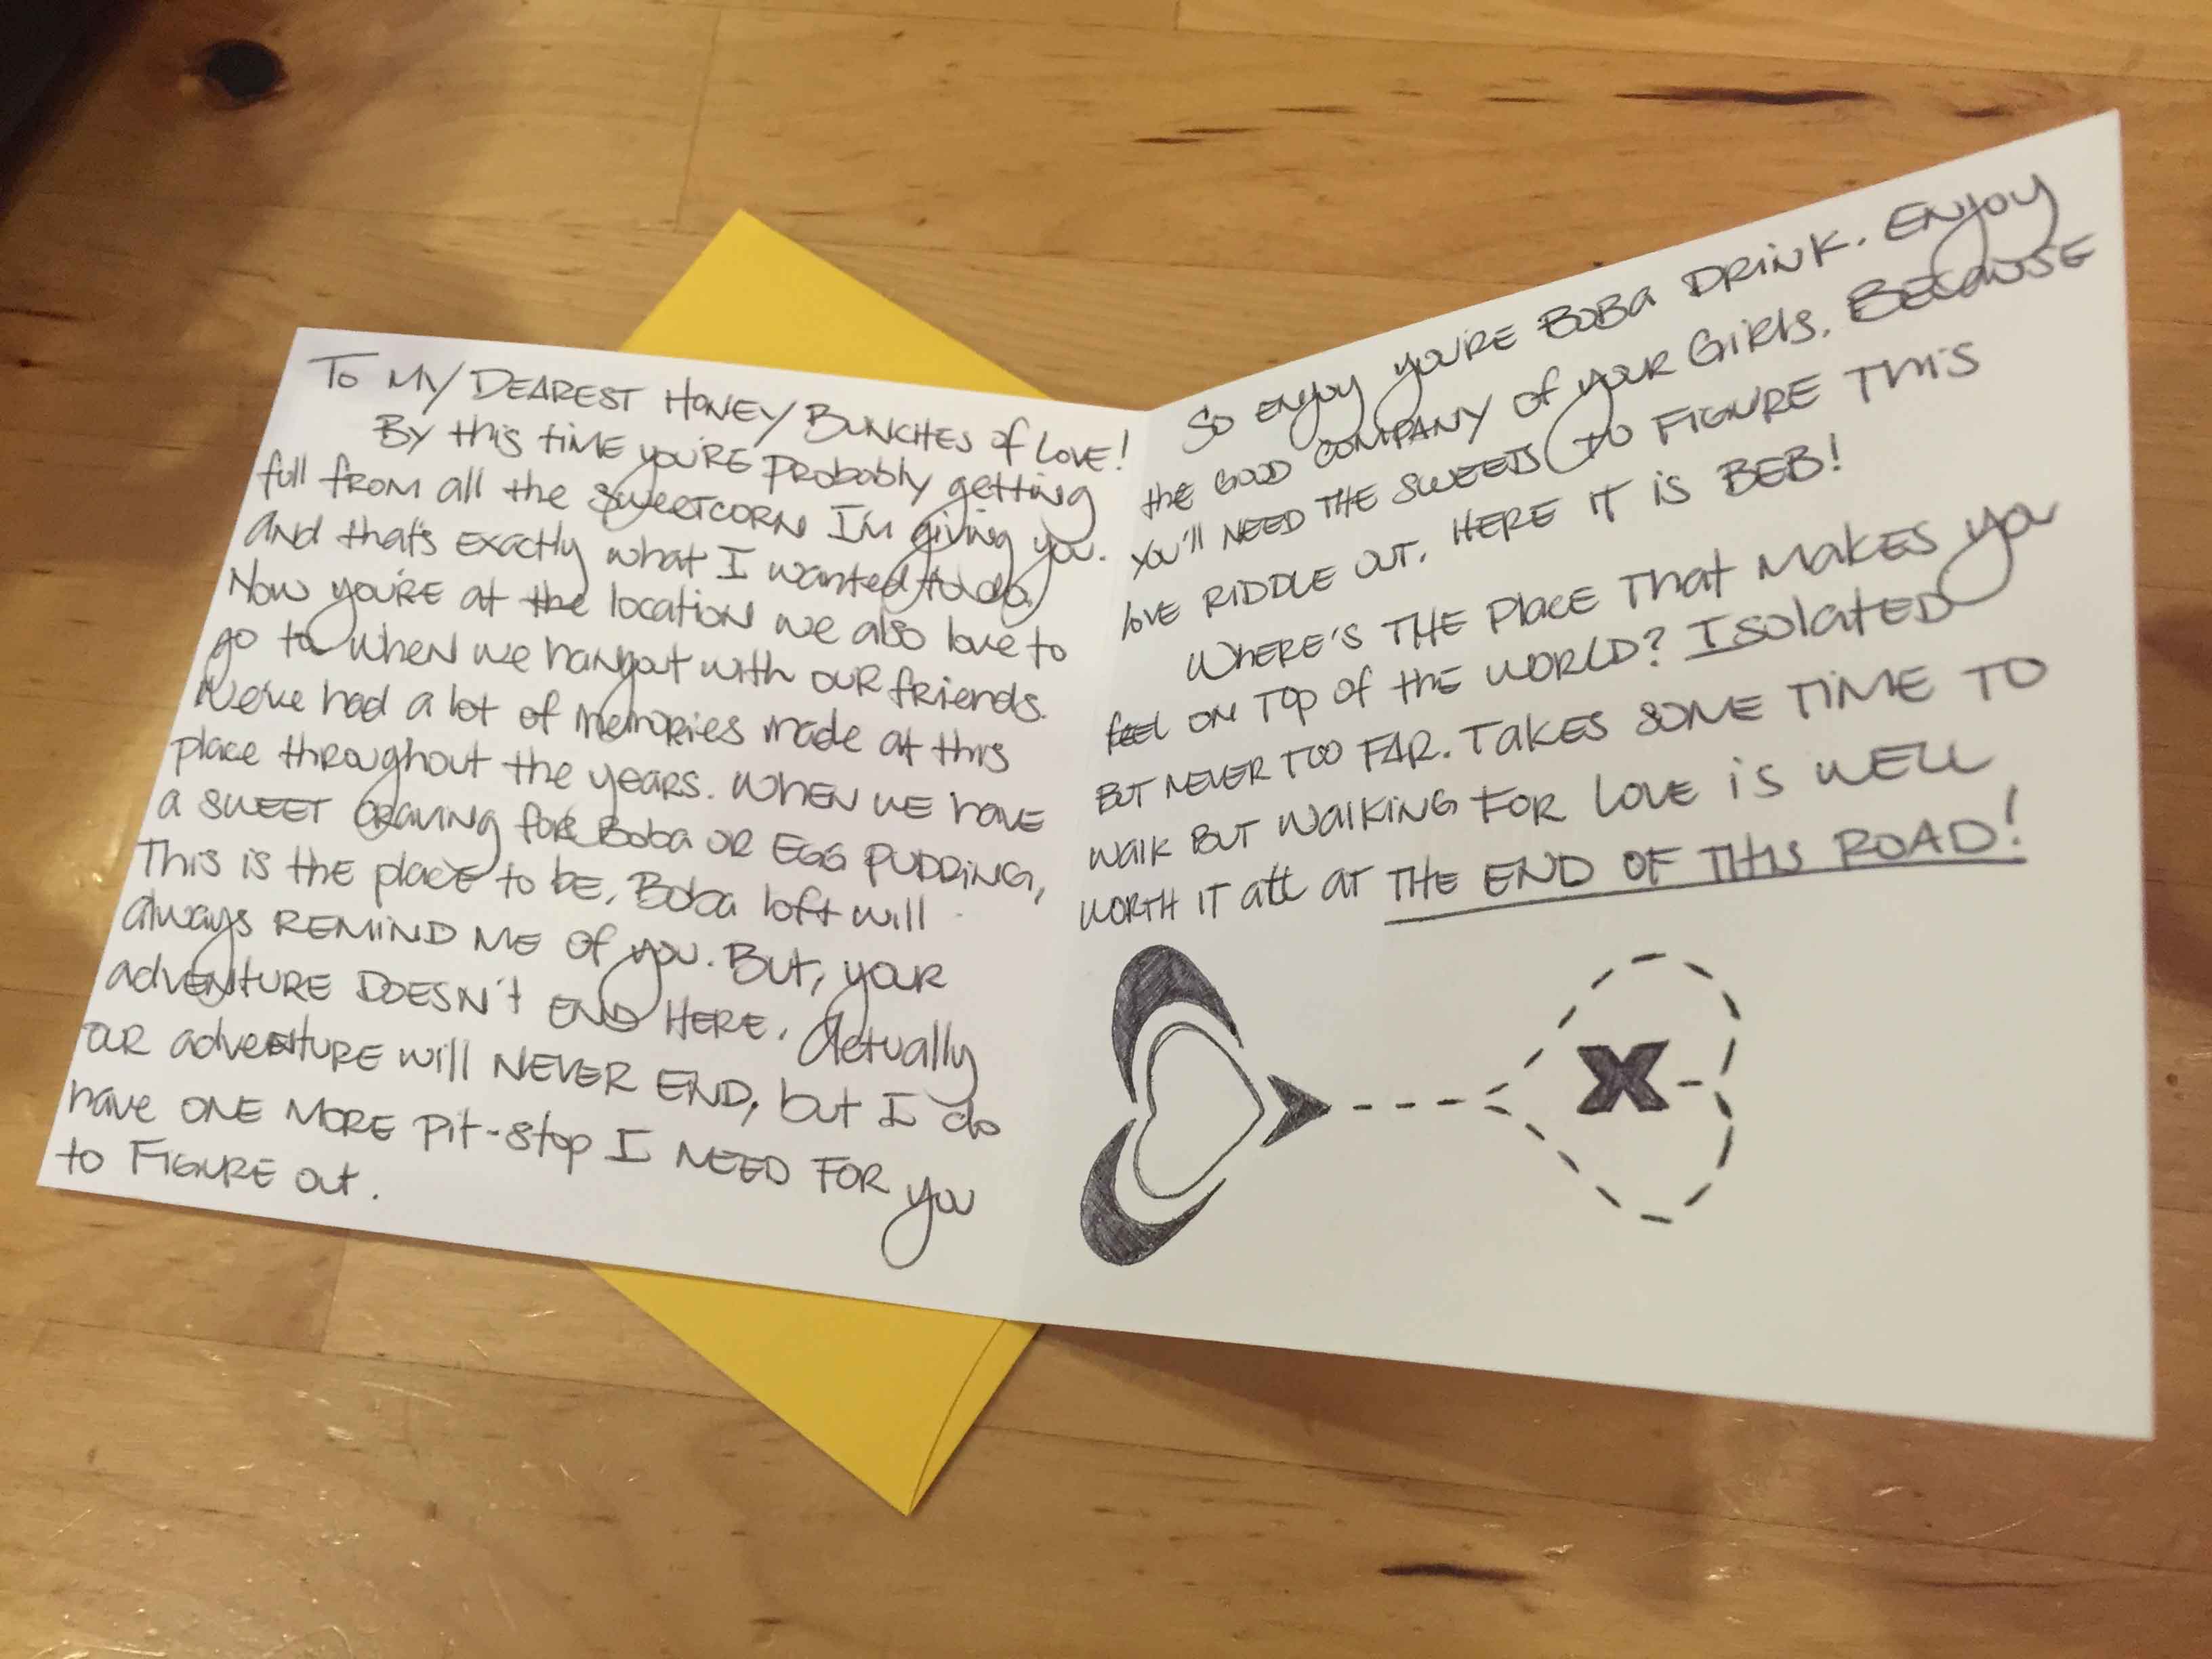 To My Dearest Honey Bunches of Love!
By this time you're probably getting
full from all the sweetcorn I'm giving you.
And that's exactly what I wanted to do.
Now you're at the location we also love to
go to when we hangout with our friends.
We've had a lot of memories made at this
place throughout the years. When we have
a sweet craving for Boba or Egg Pudding,
This is the place to be. Boba loft will
always remind me of you. But, your
adventure doesn't end here. Actually
our adventure will never end, but I do
have one more pit-stop I need for you
to figure out.
So enjoy you're Boba Drink. Enjoy
the good company of your Girls. Because
you'll need the sweets to figure this
love riddle out. Here it is Beb!
Where's the place that makes you
feel on top of the world? Isolated
but never too far. Takes some time to
walk but walking for love is well
worth it all at the end of this road!
X